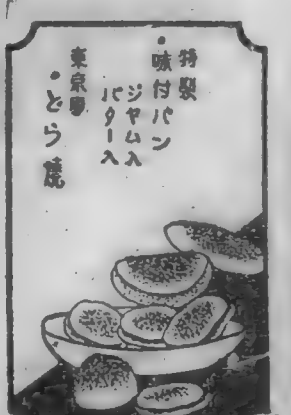 特製
・味付パン
ジャム入
バター入
東京
・どら焼